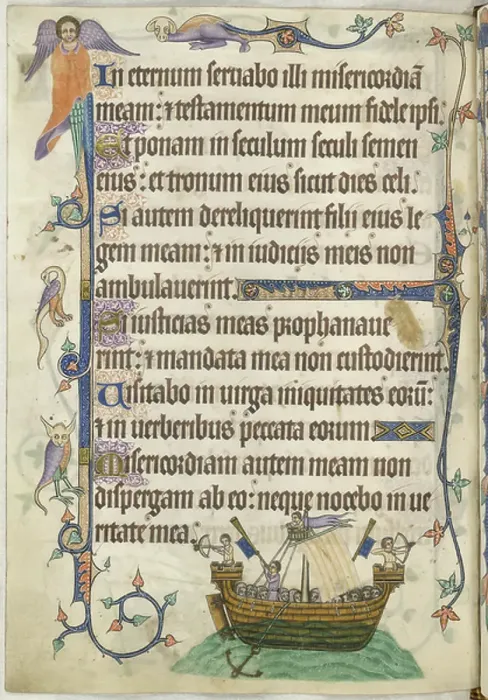 In eternum seruabo illi misericordiā
meam: ⁊ testamentum meum fidele ipsi.
Et ponam in seculum seculi semen
eius: et tronum eius sicut dies celi.
Si autem dereliquerint filii eius le
gem meam: ⁊ in iudiciis meis non
ambulauerint.
Si iusticias meas prophanaue
rint: ⁊ mandata mea non custodierint.
Uisitabo in uirga iniquitates eorū:
⁊ in uerberibus peccata eorum
Misericordiam autem meam non
dispergam ab eo: neque nocebo in ue
ritate mea.